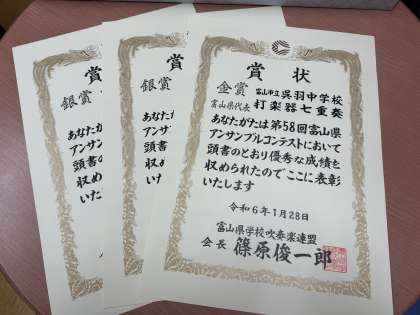 賞
銀賞
あなたが
アンサン
頭書のと
収め
いた
賞
銀賞
あなたが
アンサン
頭書のと
収め
いた
賞状
金賞 富山市立呉羽中学校
富山県代表 打楽器七重奏
あなたがたは第58回富山県
アンサンブルコンテストにおいて
頭書のとおり優秀な成績を
収められたのでここに表彰
いたします
令和6年1月28日
富山県学校吹奏楽連盟
会長 篠原俊一郎